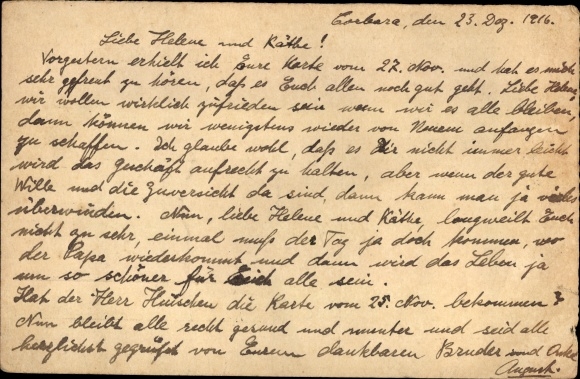 Corbara, den 23. Dez. 1916.
Liebe Helene und Käthe!
Vorgestern erhielt ich Eure Karte vom 27. Nov. und hat es mich
sehr gefreut zu hören, daß es Euch allen noch gut geht. Liebe Helene,
wir wollen wirklich zufrieden sein wenn wir es alle bleiben,
dann können wir wenigstens wieder von Neuem anfangen
zu schaffen. Ich glaube wohl, daß es Dir nicht immer leicht
wird das Geschäft aufrecht zu halten, aber wenn der gute
Wille und die Zuversicht da sind, dann kann man ja vieles
überwinden. Nun, liebe Helene und Käthe, langweilt Euch
nicht zu sehr, einmal muß der Tag ja doch kommen, wo
der Papa wiederkommt und dann wird das Leben ja
um so schöner für Euch alle sein.
Hat der Herr Hütschen die Karte vom 25. Nov. bekommen?
Nun bleibt alle recht gesund und munter und seid alle
herzlichst gegrüßt von Eurem dankbaren Bruder und Onkel
August.